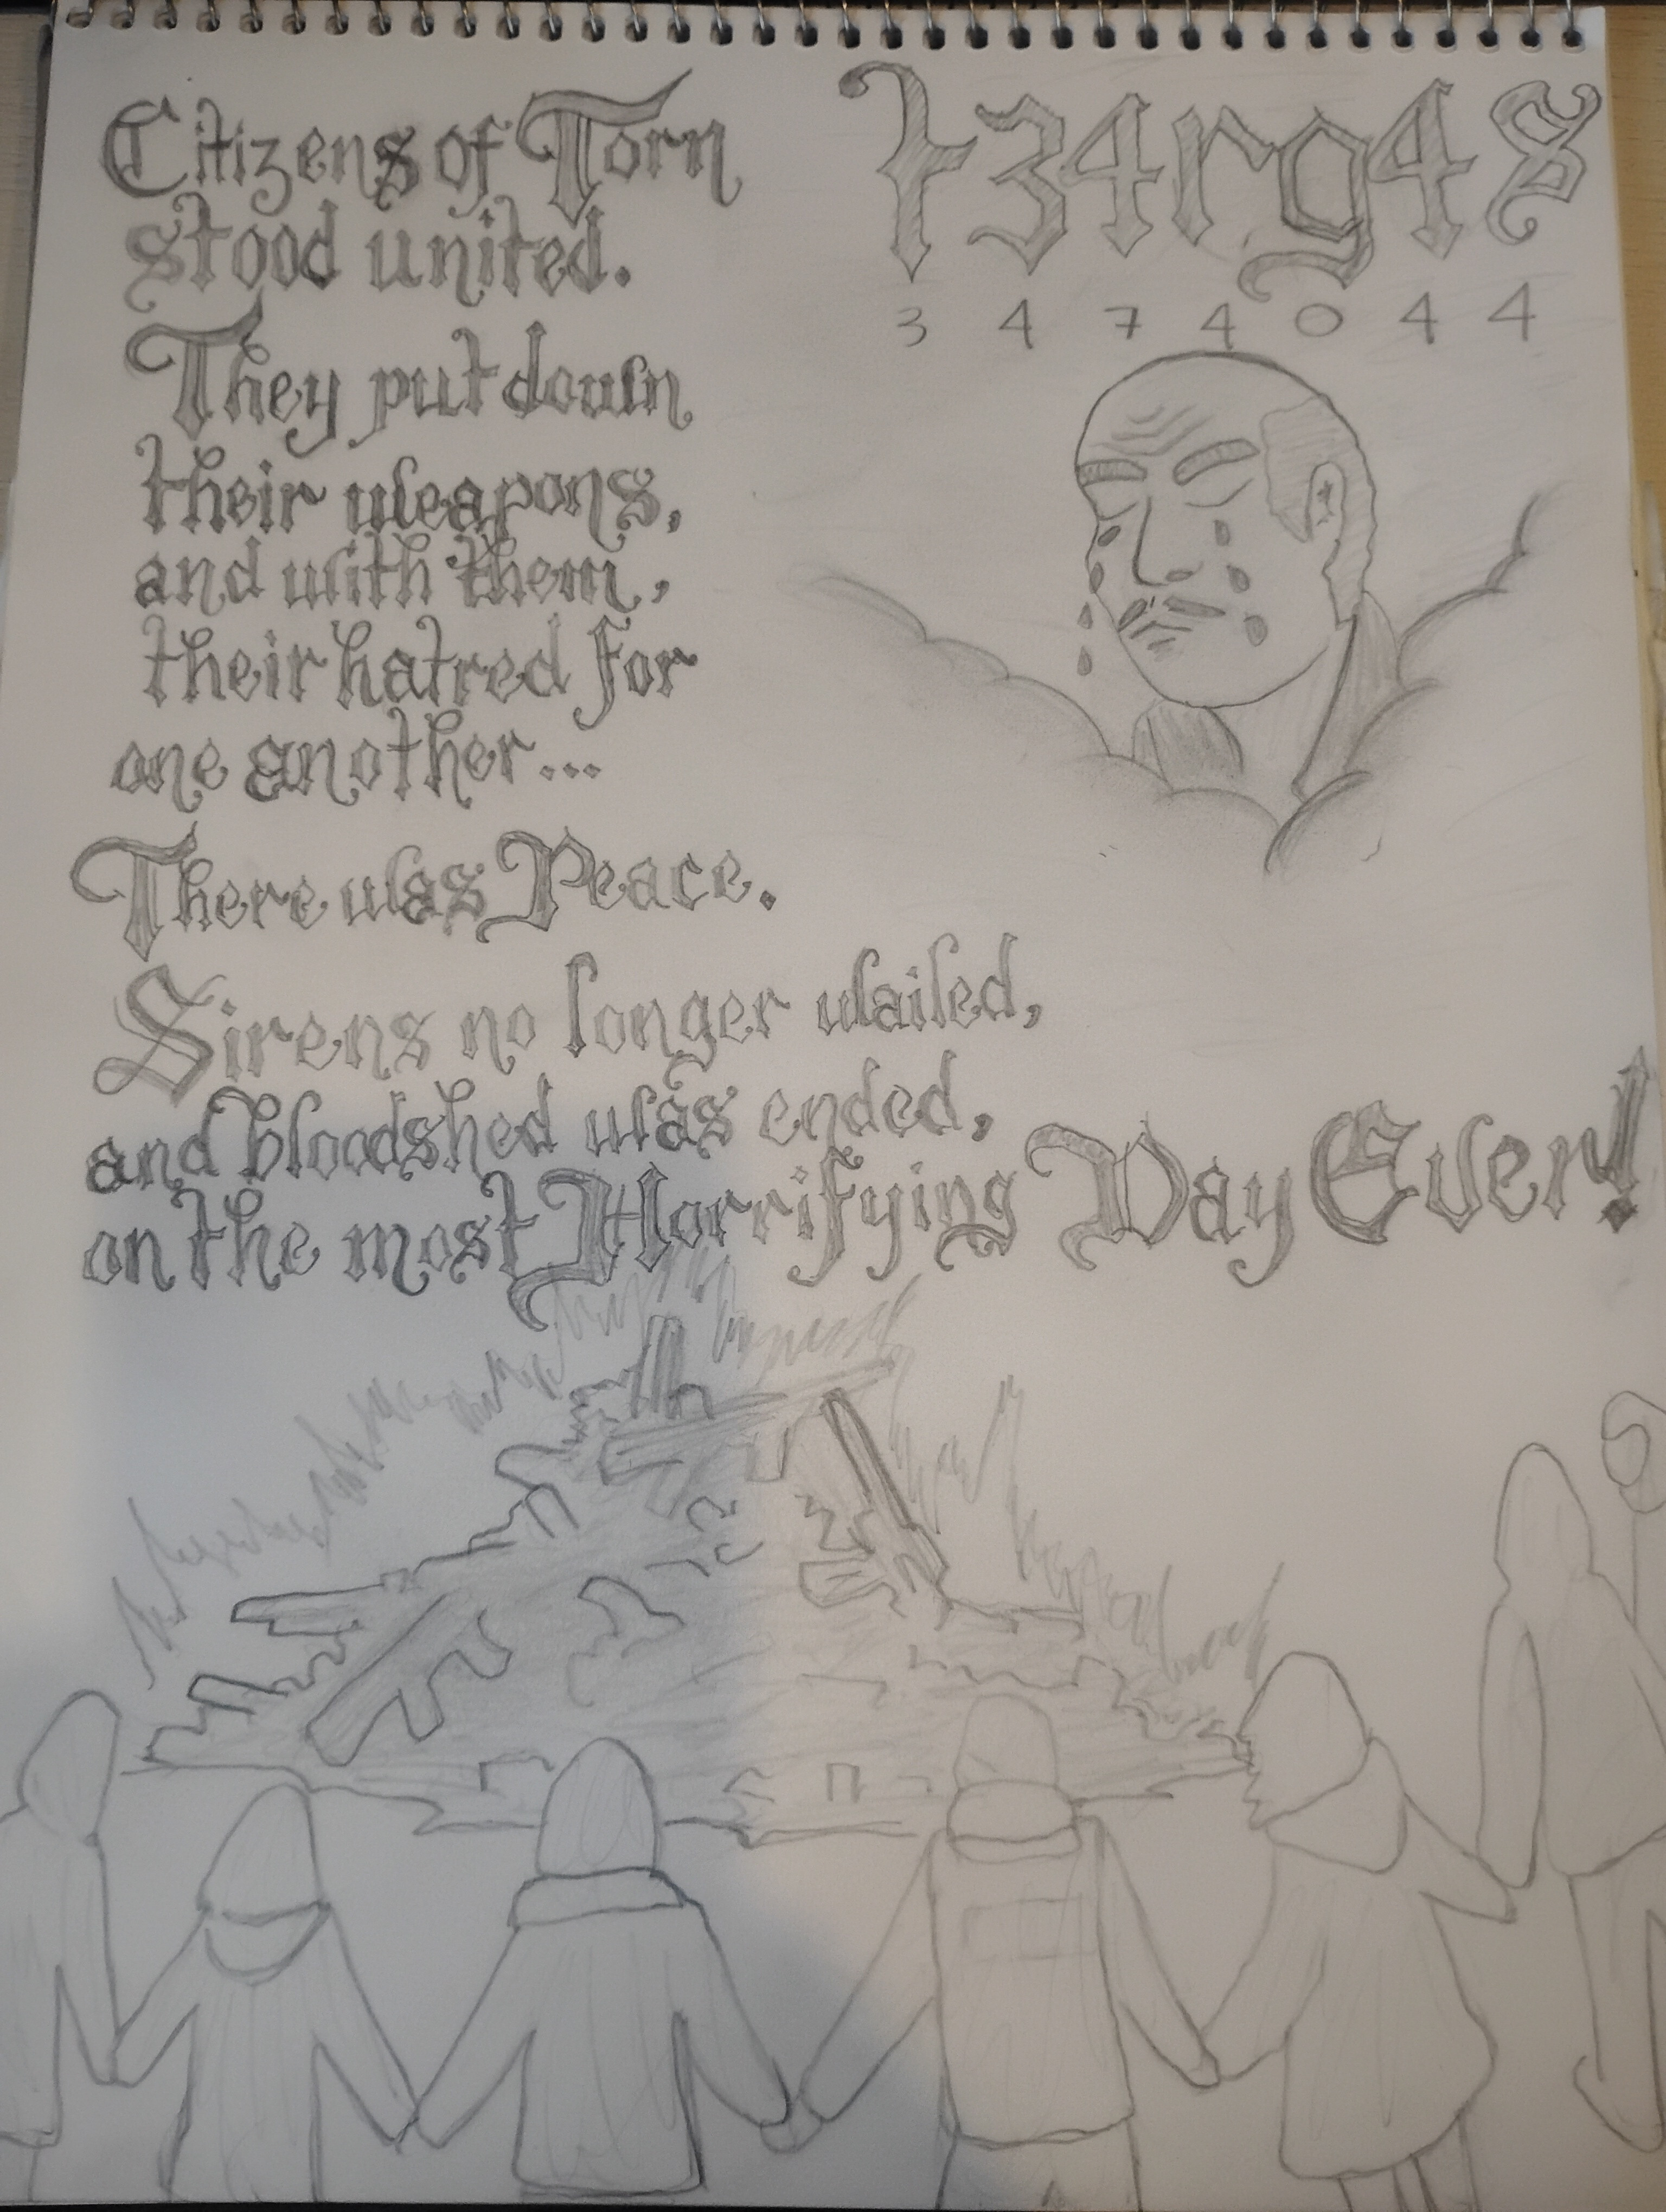 Citizens of Torn
stood united.
They put down
their weapons,
and with them,
their hatred for
one another...
There was Peace.
Sirens no longer wailed,
and bloodshed was ended,
on the most Horrifying Day Ever!
t34rg4s
3474044